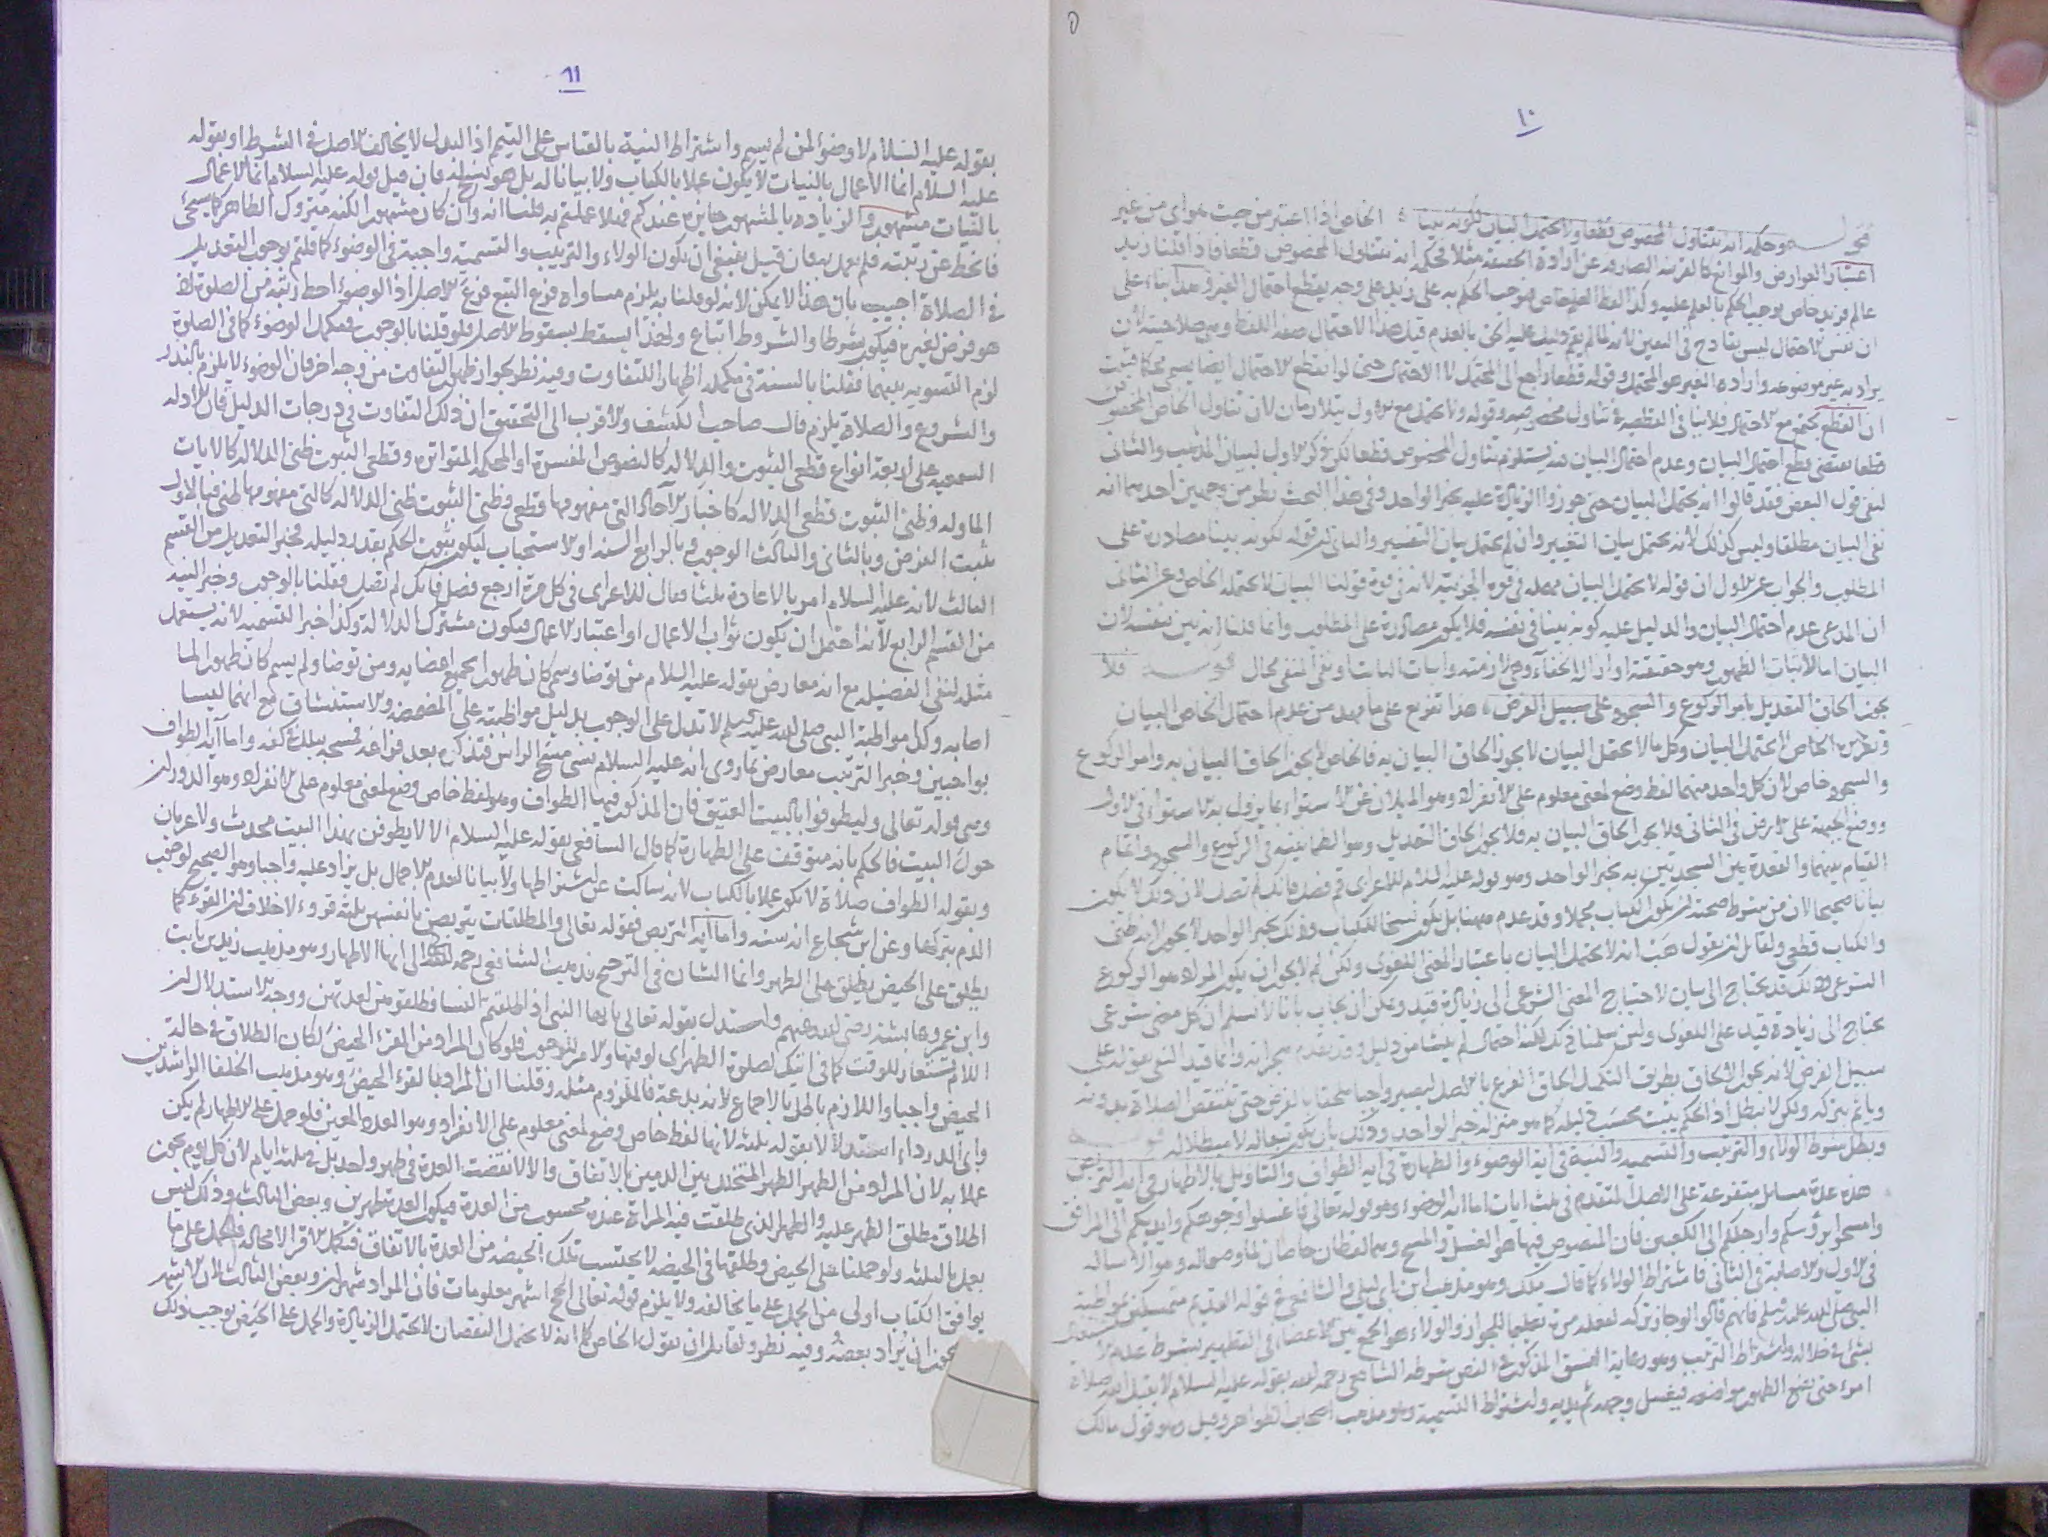 ١٠
قوله وحكمه ان يتناول المخصوص قطعا ولا يحتمل البيان لكونه بينا الخاص اذا اعتبر من حيث هو اى من غير
اعتبار العوارض والموانع كالقرينة الصارفة عن ارادة الحقيقة مثلا فحكمه ان يتناول المخصوص قطعا فاذا قلنا زيد
عالم فزيد خاص يوجب الحكم بالعلم عليه وكذا لفظ العلم خاص فيوجب الحكم به على زيد على وجه يقطع احتمال الغير وهذا بناء على
ان نفس الاحتمال ليس بقادح فى اليقين لانه لما لم يقم دليل عليه الحق بالعدم قبل هذا الاحتمال صفة اللفظ وهى صلاحيته لان
يراد به غير موضوعه وارادة الغير هو المحتمل وقوله قطعا راجع الى المحتمل لا الاحتمال حتى لو انقطع الاحتمال ايضا يسمى محكما فثبت
ان القطع يجتمع مع الاحتمال فلا ينافى القطعية فى تناول مخصوصه وقوله ولا يحتمل مع الاول متلازمان لان تناول الخاص المخصوص
قطعا يقتضى قطع احتمال البيان وعدم احتمال البيان يستلزم تناول المخصوص قطعا لكن ذكر الاول لبيان المذهب والثانى
لنفى قول البعض فقد قالوا انه يحتمل البيان حتى جوزوا الزيادة عليه بخبر الواحد وفى هذا البحث نظر من وجهين احدهما انه
نفى البيان مطلقا وليس كذلك لانه يحتمل بيان التغيير وان لم يحتمل بيان التفسير والثانى ان قوله لكونه بينا مصادرة على
المطلوب والجواب عن الاول ان قوله لا يحتمل البيان مهملة فى قوة الجزئية لانه فى قوة قولنا البيان لا يحتمله الخاص وعن الثانى
ان المدعى عدم احتمال البيان والدليل عليه كونه بينا فى نفسه فلا يكون مصادرة على المطلوب وانما قلنا انه بين بنفسه لان
البيان اما لاثبات الظهور وهو حقيقته او ازالة الخفاء وهى لازمته واثبات الثابت ونفى المنفى محال قوله فلا
يجوز الحاق التعديل بامر الركوع والسجود على سبيل الفرض هذا تفريع على ما مهد من عدم احتمال الخاص البيان
وتقريره الخاص لا يحتمل البيان وكل ما لا يحتمل البيان لا يجوز الحاق البيان به فالخاص لا يجوز الحاق البيان به وامر الركوع
والسجود خاص لان كل واحد منهما لفظ وضع لمعنى معلوم على الانفراد وهو الميلان عن الاستواء بما يزول به الاستواء فى الاول
ووضع الجبهة على الارض فى الثانى فلا يجوز الحاق البيان به فلا يجوز الحاق التعديل وهو الطمانينة فى الركوع والسجود واتمام
القيام بينهما والقعدة بين السجدتين به بخبر الواحد وهو قوله عليه السلام للاعرابى قم فصل فانك لم تصل لان ذلك لا يكون
بيانا صحيحا لان من شرط صحته ان يكون الكتاب مجملا وقد عدم ههنا بل يكون نسخا للكتاب وذلك بخبر الواحد لا يجوز لانه ظنى
والكتاب قطعى ولقائل ان يقول هب انه لا يحتمل البيان باعتبار المعنى اللغوى ولكن لم لا يجوز ان يكون المراد هو الركوع
الشرعى وذلك قد يحتاج الى بيان لاحتياج المعنى الشرعى الى زيادة قيد ويمكن ان يجاب بانا لا نسلم ان كل معنى شرعى
يحتاج الى زيادة قيد على اللغوى ولئن سلمنا ذلك لكنه احتمال لم ينشا من دليل وقد تقدم وانما قيد النفى بقوله على
سبيل الفرض لانه يجوز الالحاق بطريق التكميل الحاق الفرع بالاصل ليصير واجبا ملحقا بالفرض حتى تنتقص الصلاة بدونه
وياثم بتركه ولكن لا تبطل اذ الحكم يثبت بحسب دليله كما هو منزلة خبر الواحد وذلك بان يكون تبعا له لا مبطلا له قوله
وبطل شرط الولاء والترتيب والتسمية والنية فى اية الوضوء والطهارة فى اية الطواف والتاويل بالاطهار فى اية التربص
هذه عدة مسائل متفرعة على الاصل المتقدم فى ثلث ايات اما اية الوضوء وهو قوله تعالى فاغسلوا وجوهكم وايديكم الى المرافق
وامسحوا برؤسكم وارجلكم الى الكعبين فان المنصوص فيها هو الغسل والمسح وهما لفظان خاصان وهو الاسالة
فى الاول والاصابة فى الثانى فاشتراط الولاء كما قال ملك وهو مذهب ابن ابى ليلى والشافعى فى قوله القديم متمسكين بمواظبة
النبى صلى الله عليه وسلم فانهم قالوا لو جاز تركه لفعله مرة تعليما للجواز والولاء هو الجمع بين الاعضاء فى التطهير بشرط عدم الاشتغال
بشئ فى خلاله واشتراط الترتيب وهو رعاية النسق المذكور فى النص بشرطه الشافعى رحمه الله بقوله عليه السلام لا يقبل الله صلاة
امرء حتى يضع الطهور مواضعه فيغسل وجهه ثم يديه واشتراط التسمية وهو مذهب اصحاب الظواهر وقيل وهو قول مالك
١١
بقوله عليه السلام لا وضوء لمن لم يسم واشتراط النية بالقياس على التيمم اذ البدل لا يخالف الاصل فى الشرط او بقوله
عليه السلام انما الاعمال بالنيات لا يكون عملا بالكتاب ولا بيانا له بل هو نسخ له فان قيل قوله عليه السلام انما الاعمال
بالنيات مشهور والزيادة بالمشهور جائزة عندكم فهلا عملتم به قلنا انه وان كان مشهورا لكنه متروك الظاهر كما سيجئ
فانحط عن رتبته فلم يعمل به فان قيل ينبغى ان يكون الولاء والترتيب والتسمية واجبة فى الوضوء كما قلتم بوجوب التعديل
فى الصلاة اجيب بان هذا لا يمكن لانه لو قلنا به يلزم مساواة فرع التبع فرع الاصل اذ الوضوء احط رتبة من الصلوة لانه
هو فرض لغيره فيكون شرطا والشروط اتباع ولهذا يسقط بسقوط الاصل فلو قلنا بالوجوب فى مكمل الوضوء كما فى الصلوة
لزم التسوية بينهما فقلنا بالسنة فى مكمله اظهارا للتفاوت وفيه نظر لجواز ظهور التفاوت من وجه اخر فان الوضوء لا يلزم بالنذر
والشروع والصلاة يلزم قال صاحب الكشف والاقرب الى التحقيق ان ذلك التفاوت فى درجات الدليل فان الادلة
السمعية على اربعة انواع قطعى الثبوت والدلالة كالنصوص المفسرة او المحكمة المتواترة وقطعى الثبوت ظنى الدلالة كالايات
الماولة وظنى الثبوت قطعى الدلالة كاخبار الاحاد التى مفهومها قطعى وظنى الثبوت ظنى الدلالة كالتى مفهومها ظنى فبالاول
يثبت الفرض وبالثانى والثالث الوجوب وبالرابع السنة او الاستحباب ليكون ثبوت الحكم بقدر دليله فخبر التعديل من القسم
الثالث لانه عليه السلام امر بالاعادة ثلثا فقال للاعرابى فى كل مرة ارجع فصل فانك لم تصل فقلنا بالوجوب وخبر النية
من القسم الرابع لانه احتمل ان يكون ثواب الاعمال او اعتبار الاعمال فيكون مشترك الدلالة وكذا خبر التسمية لانه يستعمل
مثله لنفى الفضيلة مع انه معارض بقوله عليه السلام من توضا وسمى كان طهورا لجميع اعضايه ومن توضا ولم يسم كان طهورا لما
اصابه وكذا مواظبة النبى صلى الله عليه وسلم لا تدل على الوجوب بدليل مواظبته على المضمضة والاستنشاق مع انهما ليسا
بواجبين وخبر الترتيب معارض بما روى انه عليه السلام نسى مسح الراس فتذكره بعد فراغه فمسحه ببلل كفه واما اية الطواف
وهى قوله تعالى وليطوفوا بالبيت العتيق فان المذكور فيها الطواف وهو لفظ خاص وضع لمعنى معلوم على الانفراد وهو الدوران
حول البيت فالحكم بانه متوقف على الطهارة كما قال الشافعى بقوله عليه السلام الا لا يطوفن بهذا البيت محدث ولا عريان
وبقوله الطواف صلاة لا يكون عملا بالكتاب لانه ساكت عن اشتراطها ولا بيانا لعدم الاجمال بل يزاد عليه واجبا وهو الصحيح لوجوب
الدم بتركها وعن ابن شجاع انه سنة واما اية التربص فقوله تعالى والمطلقات يتربصن بانفسهن ثلثة قروء لا خلاف ان القرء كما
يطلق على الحيض يطلق على الطهر وانما الشان فى الترجيح فذهب الشافعى رحمه الله الى انها الاطهار وهو مذهب زيد بن ثابت
وابن عمر وعايشة رضى الله عنهم واستدل بقوله تعالى يا ايها النبى اذا طلقتم النسا فطلقوهن لعدتهن ووجه الاستدلال ان
اللام تستعار للوقت كما فى اتيك لصلوة الظهر اى لوقتها والامر للوجوب فلو كان المراد من القرء الحيض لكان الطلاق فى حالة
الحيض واجبا واللازم باطل بالاجماع لانه بدعة فالملزوم مثله وقلنا ان المراد بالقرء الحيض وهو مذهب الخلفا الراشدين
وابى الدرداء استدلالا بقوله ثلثة لانها لفظ خاص وضع لمعنى معلوم على الانفراد وهو العدد المعين فلو حمل على الاطهار لم يكن
عملا به لان المراد من الطهر الطهر المتخلل بين الدمين بالاتفاق والا لانقضت العدة فى طهر واحد بل فى ثلثة ايام لان كل يوم يجوز
اطلاق مطلق الطهر عليه والطهر الذى طلقت فيه المراة عنده محسوب من العدة فيكون العدة طهرين وبعض الثالث وذلك ليس
بعمل بالثلثة ولو حملنا على الحيض وطلقها فى الحيضة لا يحتسب تلك الحيضة من العدة بالاتفاق فتكمل الاقراء لا محالة فالحمل على ما
يوافق الكتاب اولى من الحمل على ما يخالفه ولا يلزم قوله تعالى الحج اشهر معلومات فان المراد شهران وبعض الثالث لان الاشهر
يجوز ان يراد بعضه وفيه نظر ولقائل ان يقول الخاص كما انه لا يحتمل النقصان لا يحتمل الزيادة والحمل على الحيض يوجب ذلك